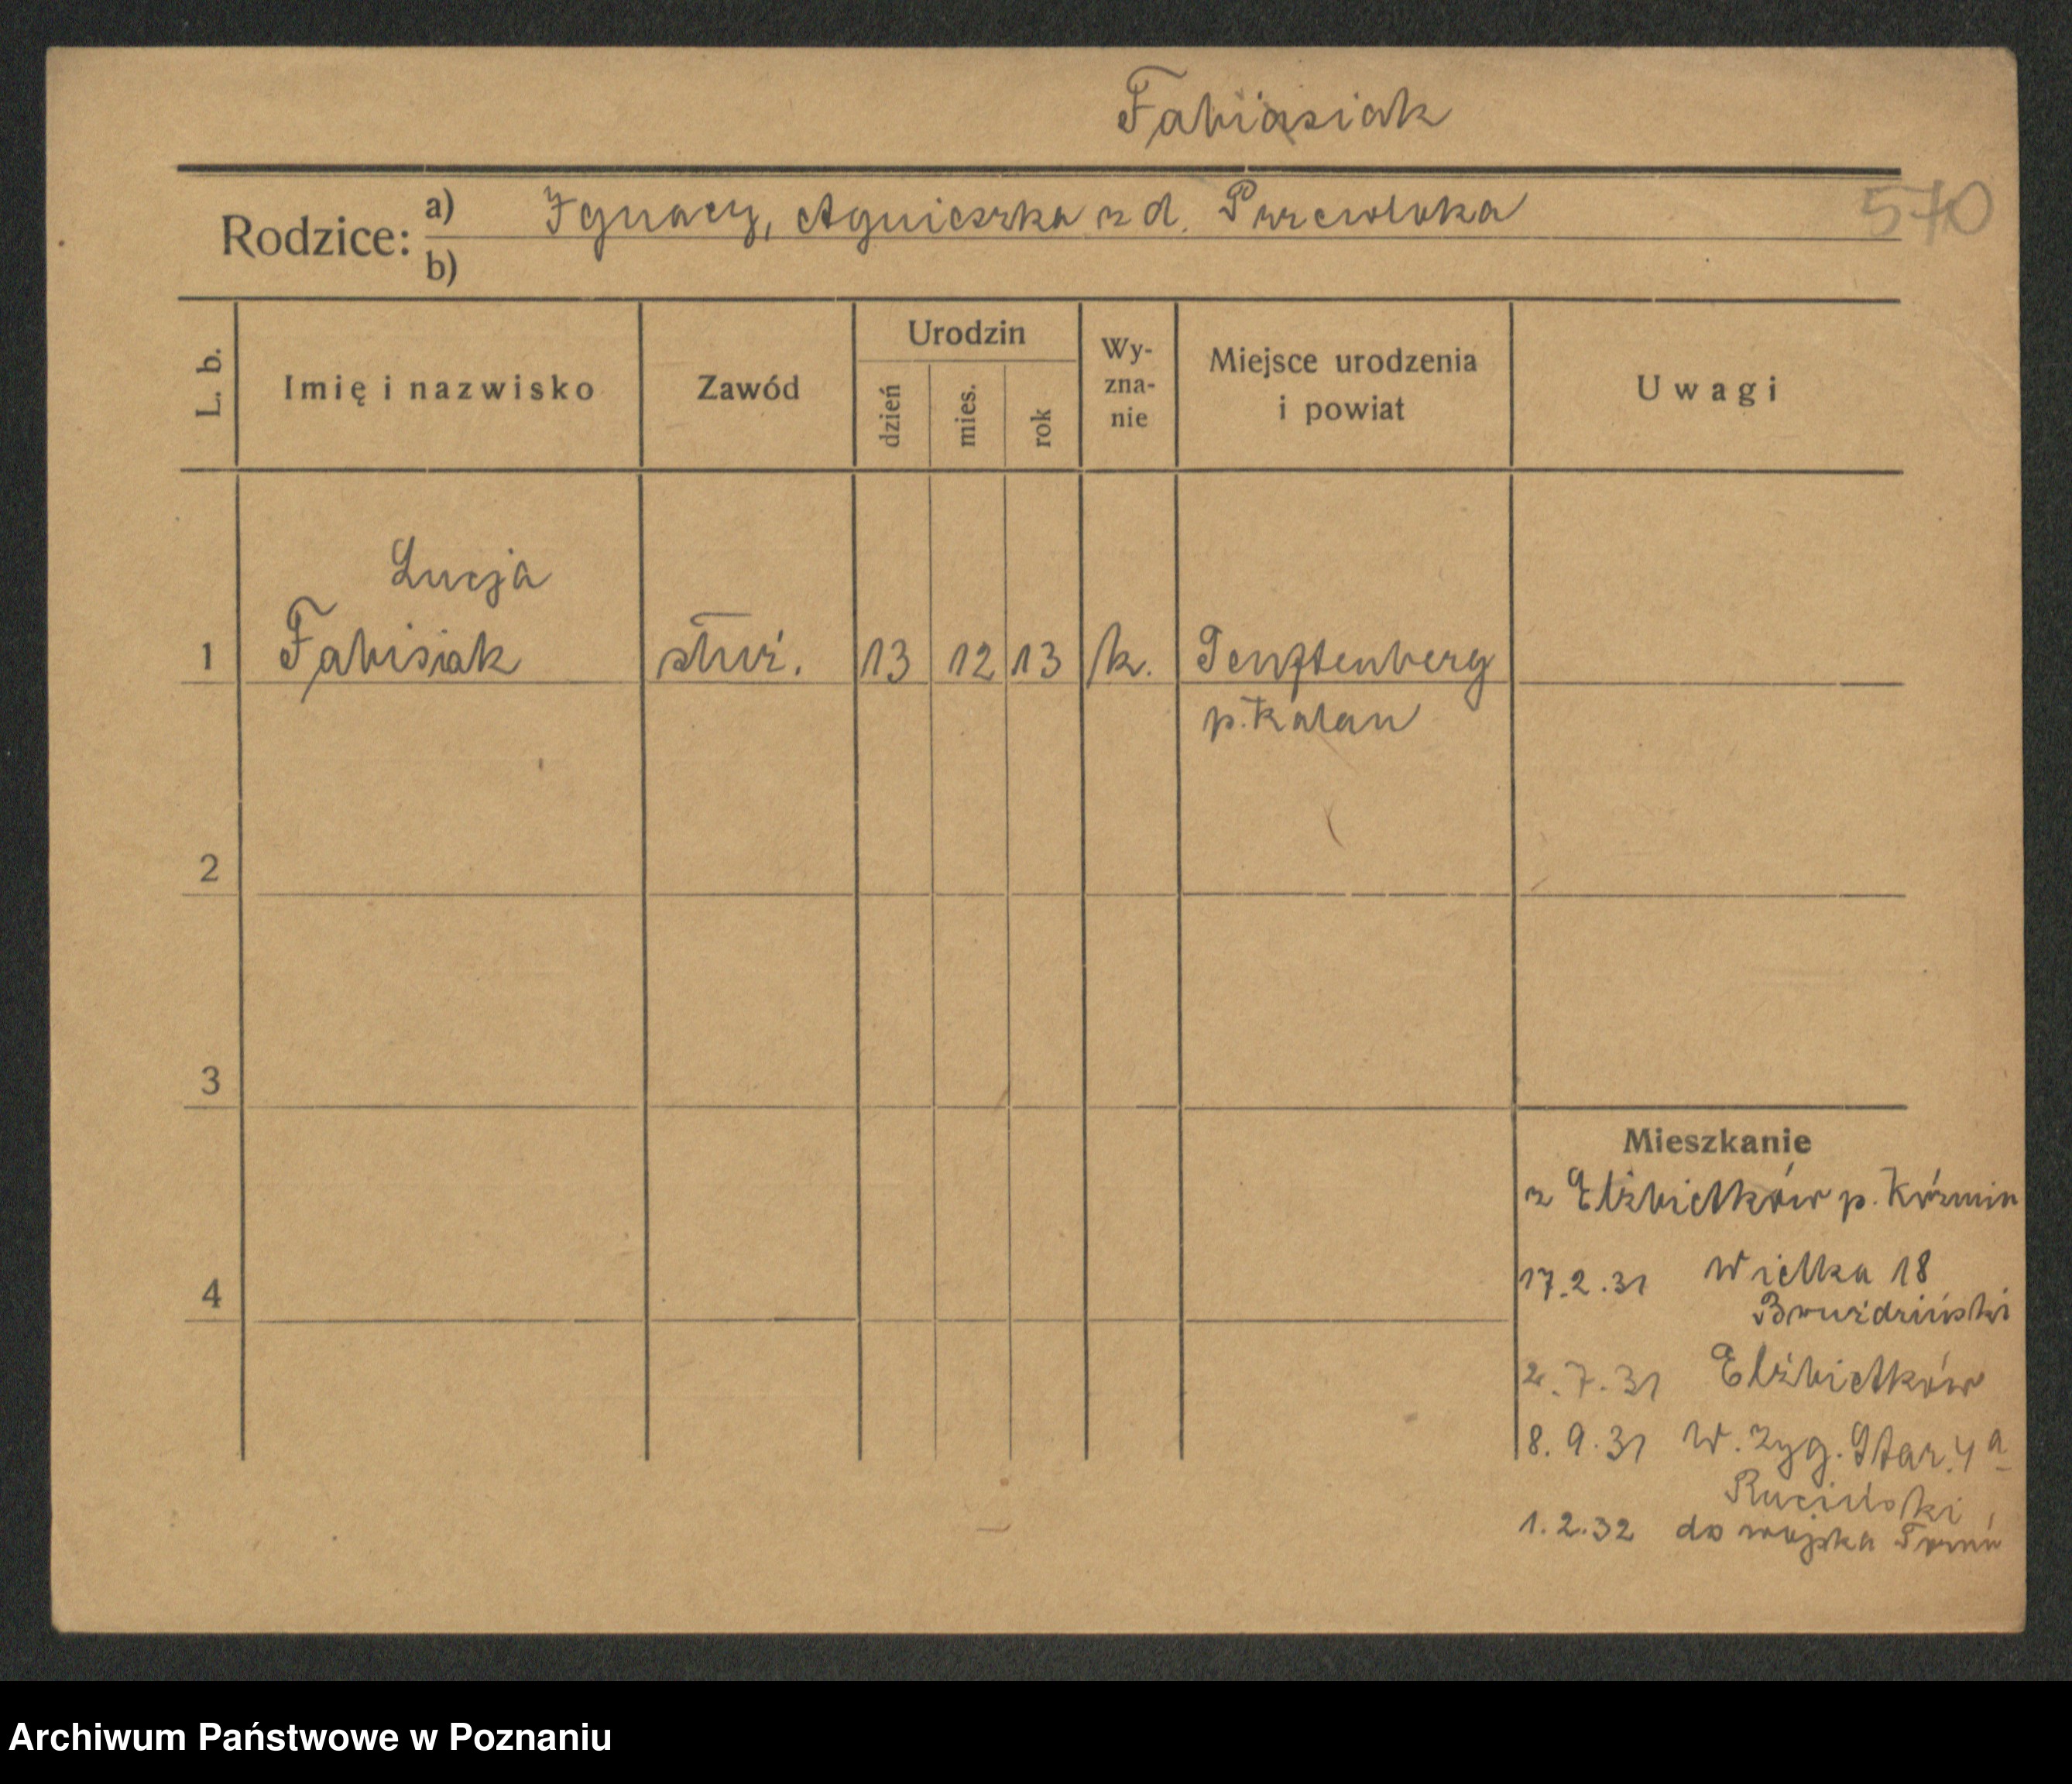 Fabiasiak
Rodzice: a) Ignacy, Agnieszka z d. Przewloka
570
b)
L. b.
Imię i nazwisko
Zawód
Urodzin
dzień
mies.
rok
Wy-
zna-
nie
Miejsce urodzenia
i powiat
Uwagi
Lucja
1 Fabisiak służ. 13 12 13 k. Senftenberg
p. Kalau
2
3
4
Mieszkanie
z Elżbietków p. Koźmin
17.2.31 Wielka 18
Bruździński
2.7.31 Elżbietków
8.9.31 W. Zyg. Star. 4a
1.2.32 do wojska Toruń
Archiwum Państwowe w Poznaniu